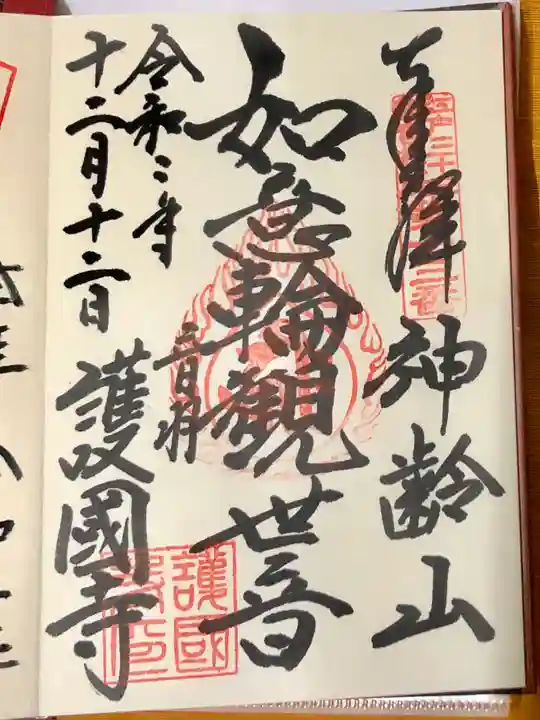 奉拝 神齢山
如意輪観世音
音羽
護國寺
令和二年
十二月十二日